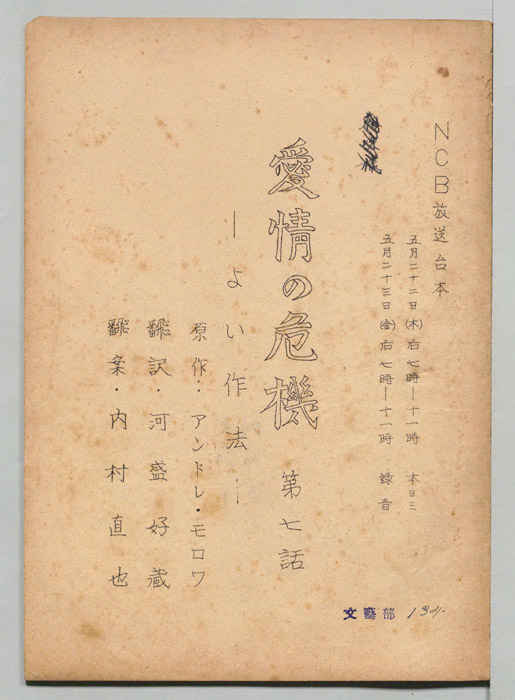 NCB放送台本
五月二十二日(木)后七時—十一時 本ヨミ
五月二十三日(金)后七時—十一時 録音
愛情の危機 第七話
—よい作法—
原作・アンドレ・モロワ
飜訳・河盛好蔵
飜案・内村直也
文藝部 134